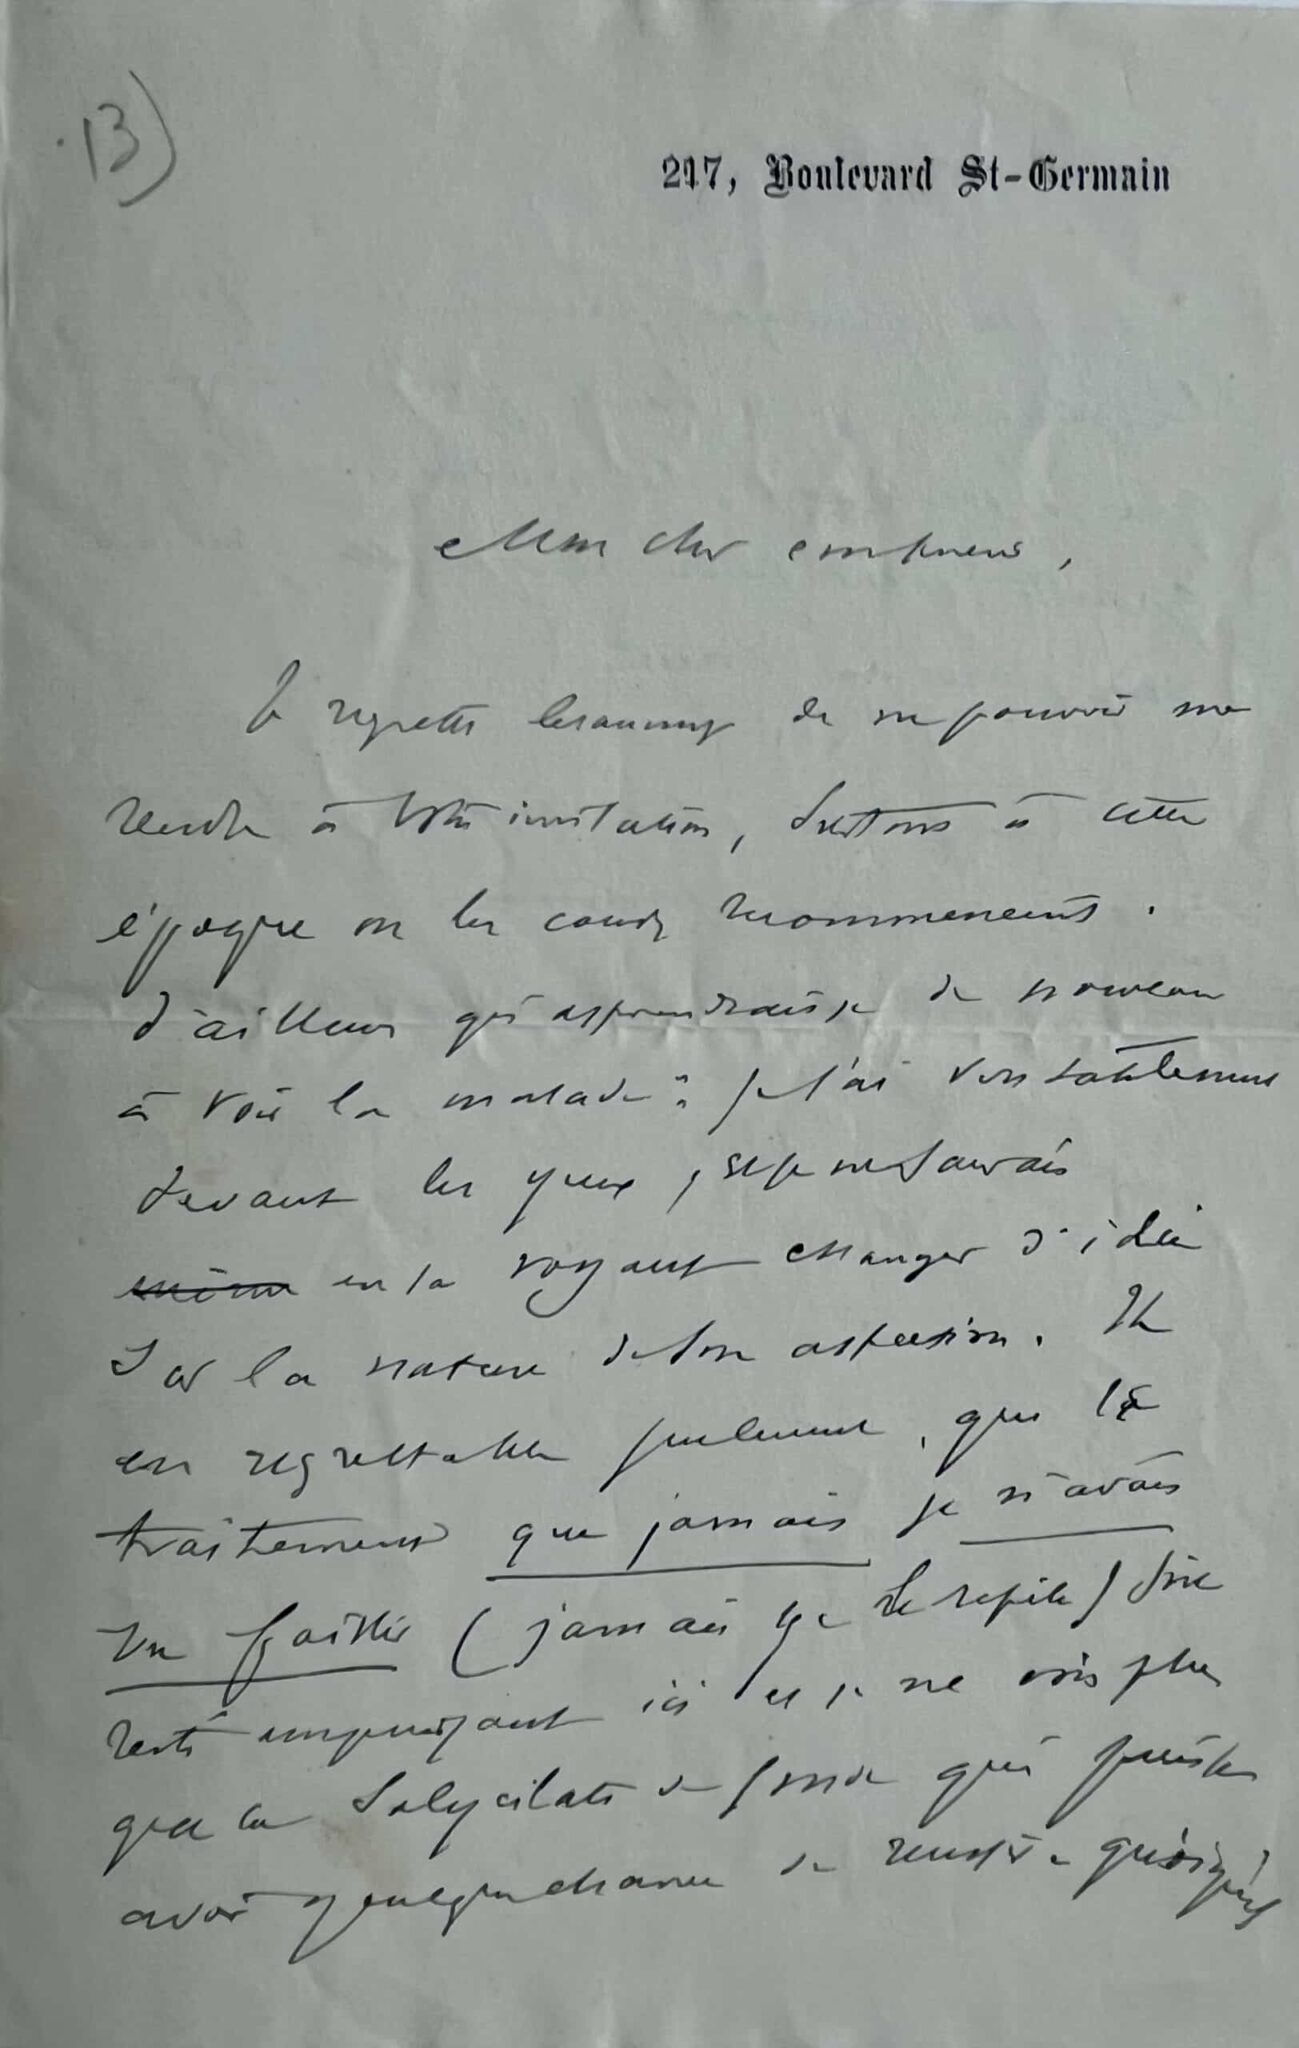 13)
217, Boulevard St-Germain
Mon cher confrère,
Je regrette beaucoup de ne pouvoir me
rendre à votre invitation, surtout à cette
époque où les cours recommencent.
d'ailleurs qu'apprendrais je de nouveau
à voir la malade : je l'ai véritablement
devant les yeux, et je ne saurais
même en la voyant changer d'idée
sur la nature de son affection. Il
est regrettable seulement, que le
traitement que jamais je n'avais
vu faillir (jamais je le répète) soit
resté impuissant ici et je ne vois plus
que le salycilate de soude qui puisse
avoir quelque chance de réussir